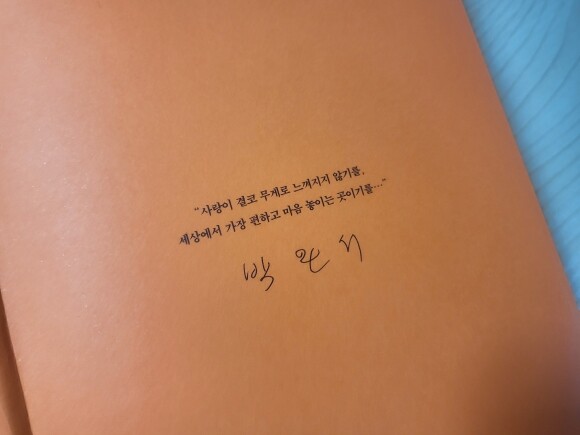 “사랑이 결코 무게로 느껴지지 않기를,
세상에서 가장 편하고 마음 놓이는 곳이기를…”